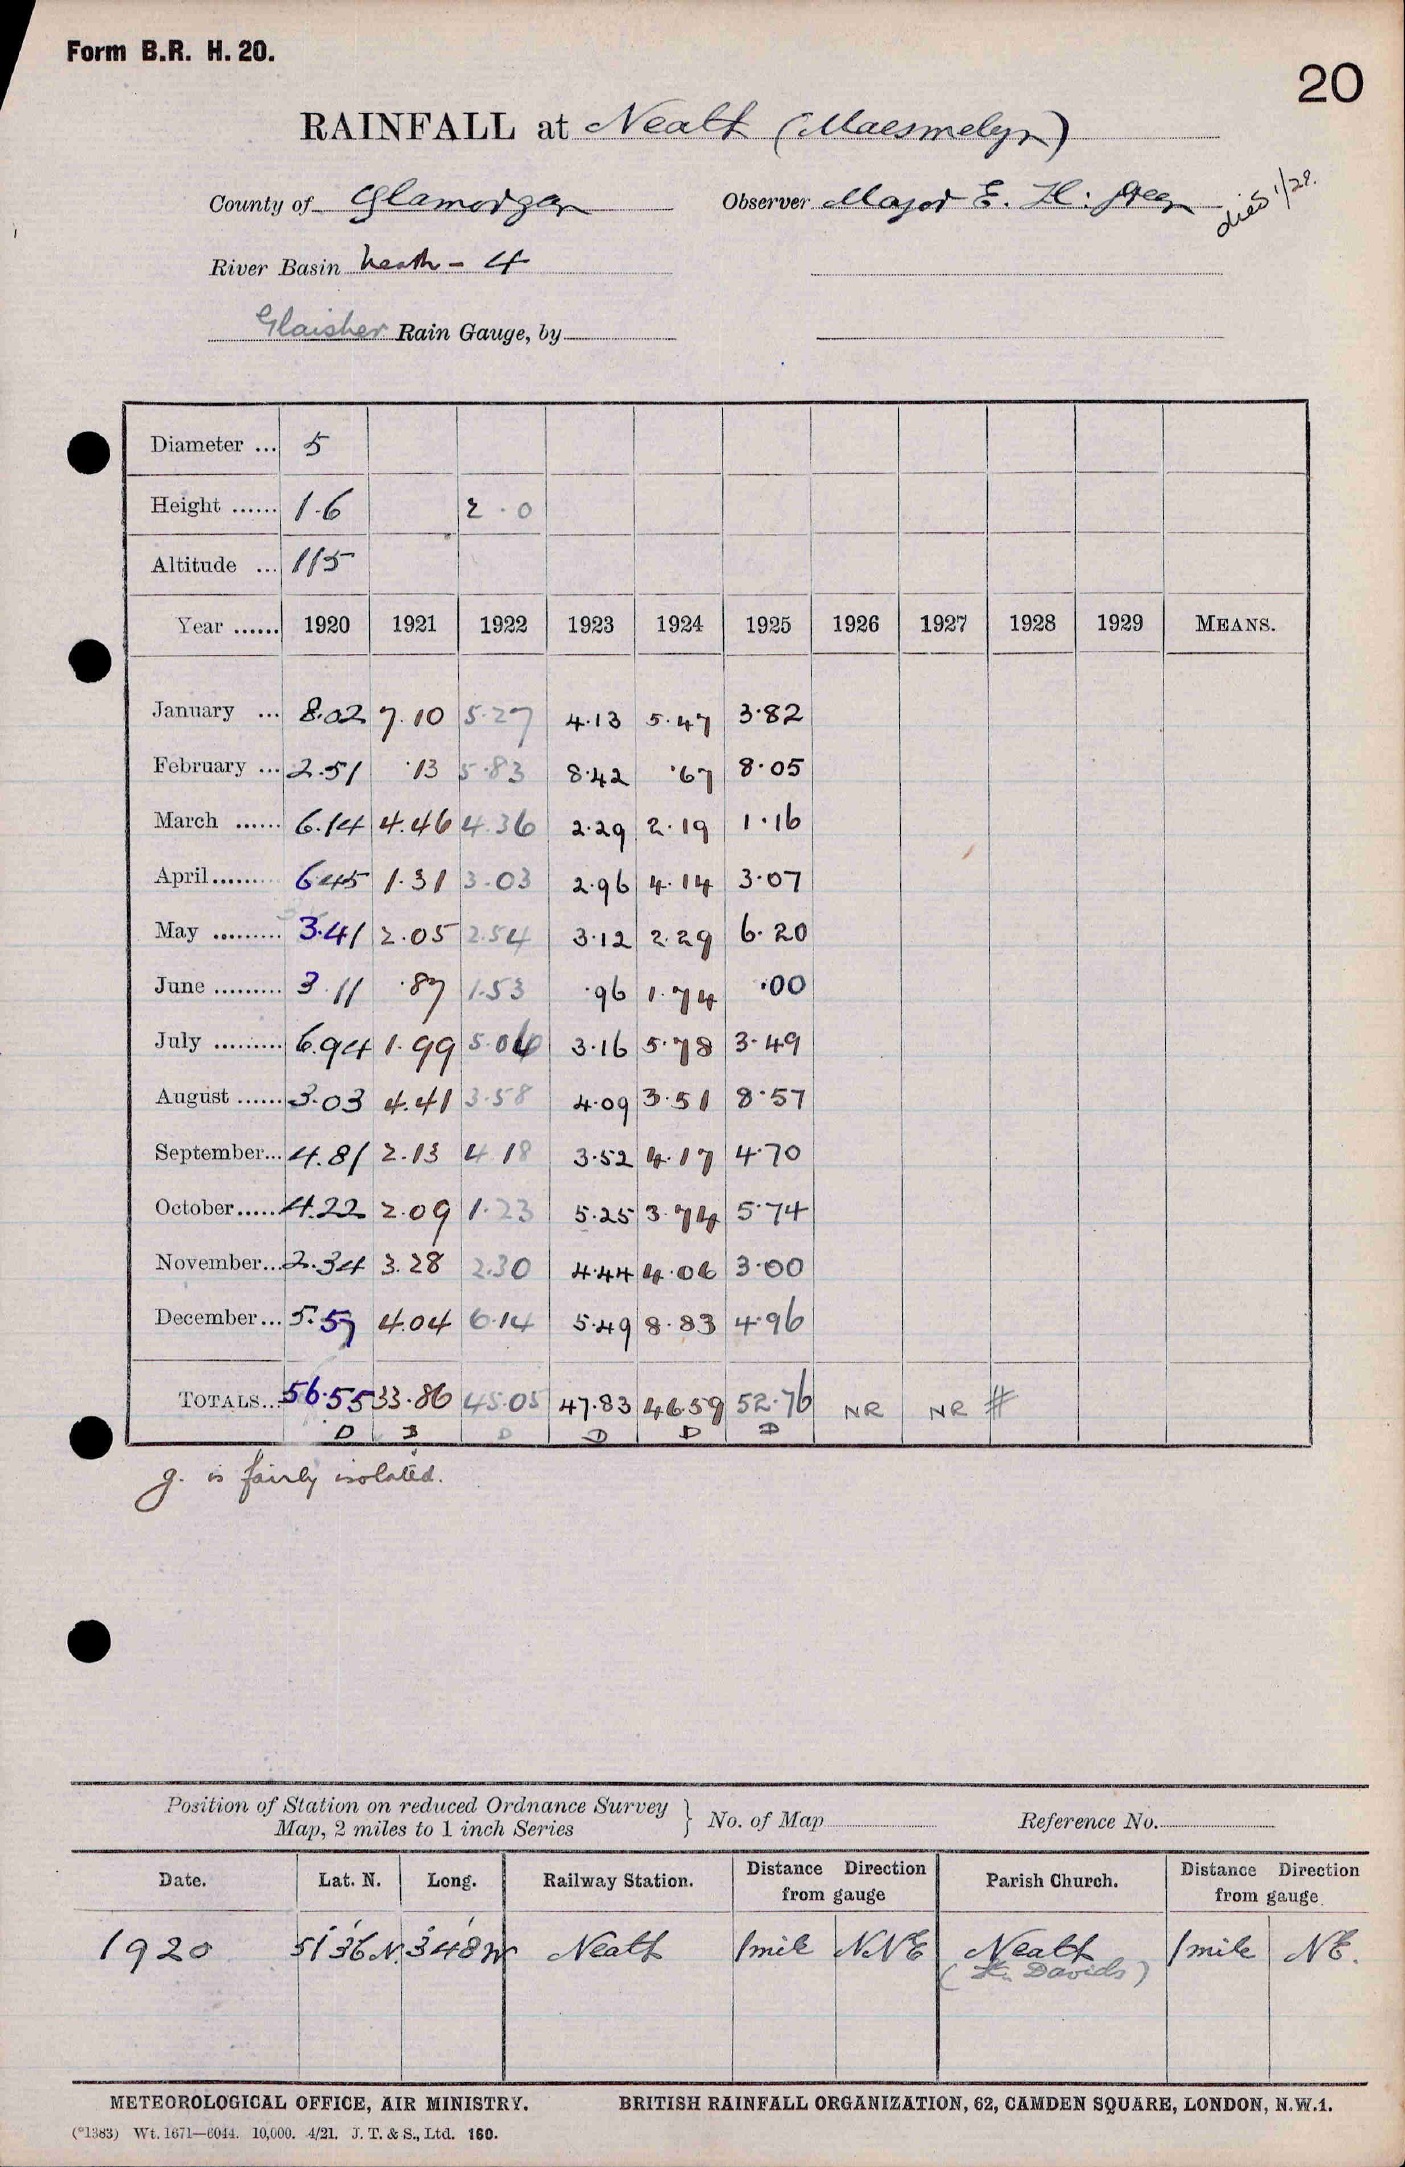 Form B.R. H. 20.
20
RAINFALL at Neath (Maesmelyn)
County of Glamorgan Observer Major E. H.
died 1/28.
River Basin Neath - 4
Glaisher Rain Gauge, by
Diameter ... 5
Height ...... 1.6 2.0
Altitude ... 115
Year ...... 1920 1921 1922 1923 1924 1925 1926 1927 1928 1929 MEANS.
January ... 8.02 7.10 5.27 4.13 5.47 3.82
February ... 2.51 .13 5.83 8.42 .67 8.05
March ...... 6.14 4.46 4.36 2.29 2.19 1.16
April......... 6.45 1.31 3.03 2.96 4.14 3.07
May ......... 3.41 2.05 2.54 3.12 2.29 6.20
June ......... 3.11 .87 1.53 .96 1.74 .00
July ......... 6.94 1.99 5.06 3.16 5.78 3.49
August ...... 3.03 4.41 3.58 4.09 3.51 8.57
September... 4.81 2.13 4.18 3.52 4.17 4.70
October..... 4.22 2.09 1.23 5.25 3.74 5.74
November... 2.34 3.28 2.30 4.44 4.06 3.00
December... 5.57 4.04 6.14 5.49 8.83 4.96
TOTALS... 56.55 33.86 45.05 47.83 46.59 52.76 NR NR #
D D D D D
g. is fairly isolated.
Position of Station on reduced Ordnance Survey
Map, 2 miles to 1 inch Series } No. of Map Reference No.
Date. Lat. N. Long. Railway Station. Distance Direction from gauge Parish Church. Distance Direction from gauge.
1920 51° 36' N. 3° 48' W Neath 1 mile NNE Neath 1 mile NE.
(St. Davids)
METEOROLOGICAL OFFICE, AIR MINISTRY. BRITISH RAINFALL ORGANIZATION, 62, CAMDEN SQUARE, LONDON, N.W.1.
(*1383) Wt. 1671—6044. 10,000. 4/21. J. T. & S., Ltd. 160.